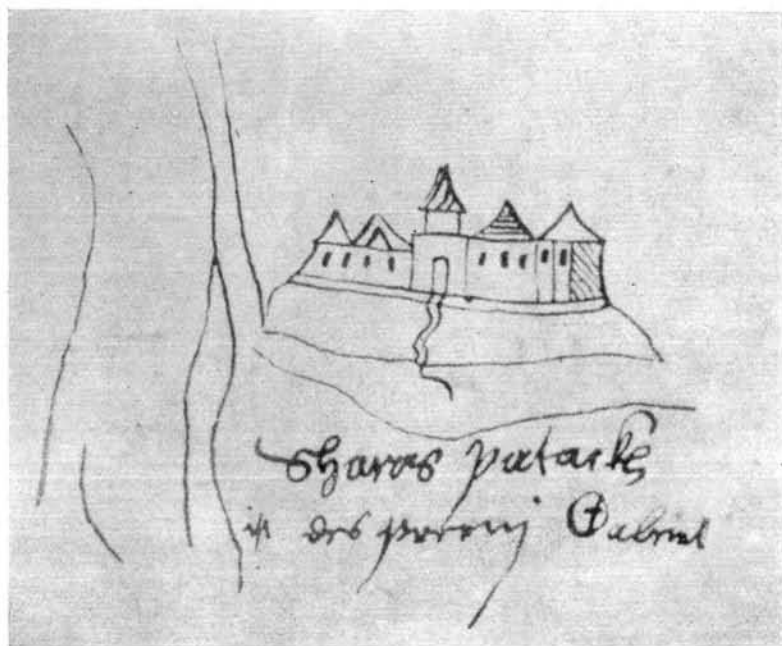 Sharos patackh
ist des pereni Gabriel